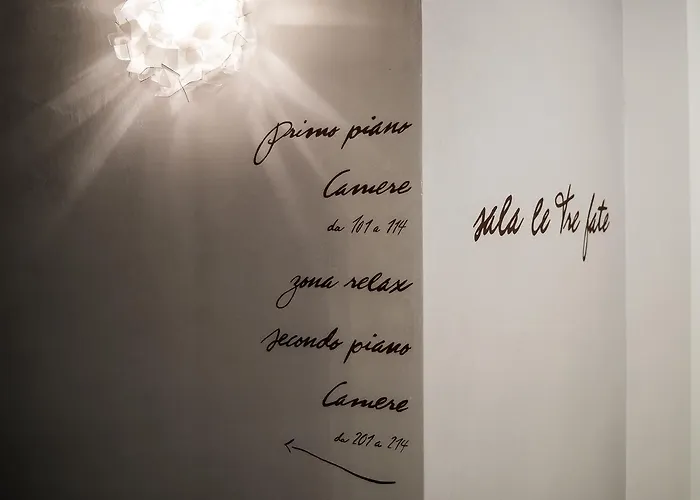 primo piano
Camere
da 101 a 114
zona relax
secondo piano
Camere
da 201 a 214
sala le tre fate